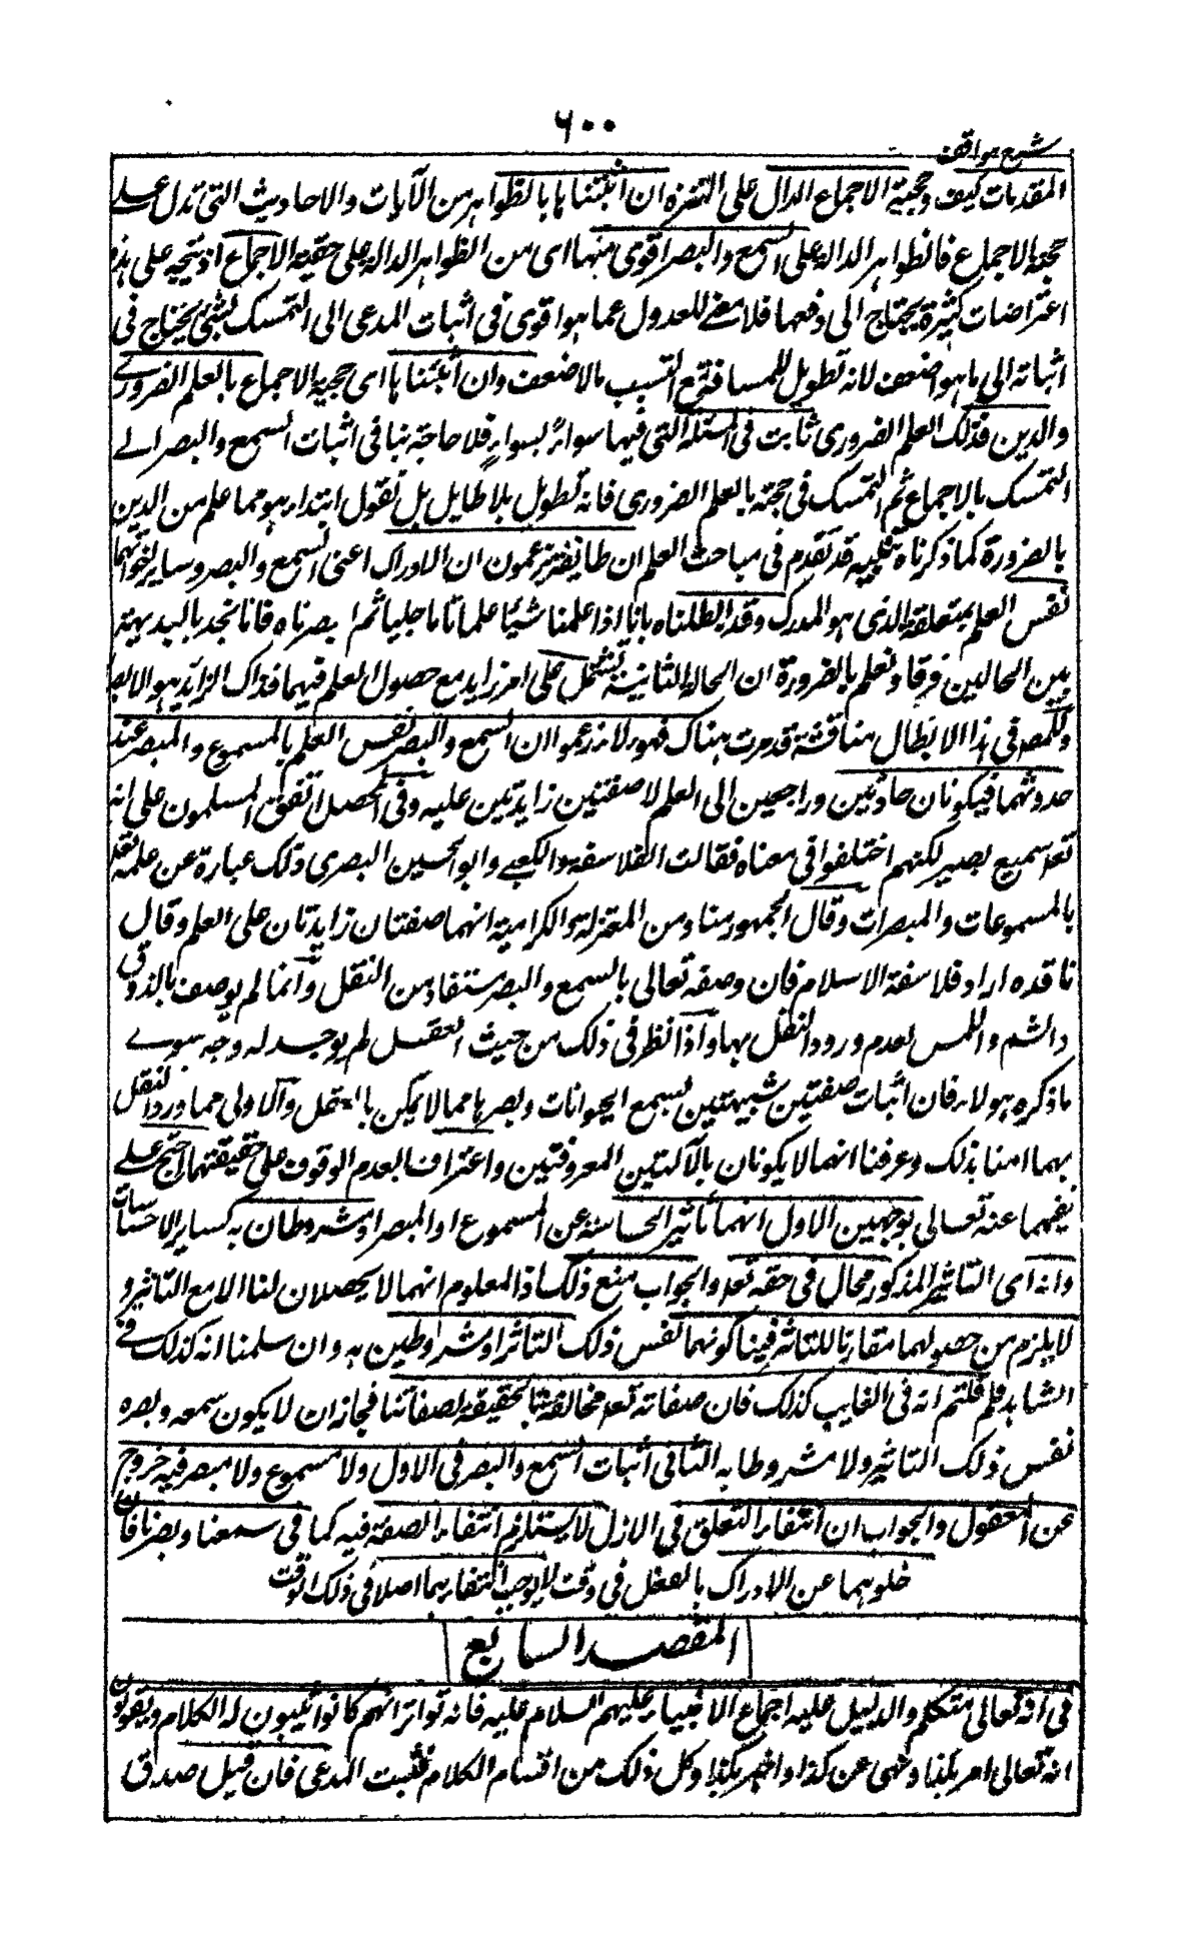 ٦٠٠
شرح مواقف
المقدمات كيف وحجية الاجماع الدال على التنزه ان اثبتناها بالظواهر من الآيات والاحاديث التى تدل على
حجية الاجماع فالظواهر الدالة على السمع والبصر اقوى منها اى من الظواهر الدالة على حقية الاجماع اذ يتجه على هذه
اعتراضات كثيرة يحتاج الى دفعها فلا معنى للعدول عما هو اقوى فى اثبات المدعى الى التمسك بشئ يحتاج فى
اثباته الى ما هو اضعف لانه تطويل للمسافة مع التسبب بالاضعف وان اثبتناها اى حجية الاجماع بالعلم الضرورى
والدين فذلك العلم الضرورى ثابت فى المسئلة التى فيها سواءً بسواءٍ فلا حاجة بنا فى اثبات السمع والبصر الى
التمسك بالاجماع ثم التمسك فى حجته بالعلم الضرورى فانه تطويل بلا طايل بل نقول ابتداء هو مما علم من الدين
بالضرورة كما ذكرناه تنبيه قد تقدم فى مباحث العلم ان طائفة يزعمون ان الادراك اعنى السمع والبصر وساير اخواتهما
نفس العلم بمتعلقه الذى هو المدرك وقد ابطلناه بانا اذا علمنا شيئا علما تاما جليا ثم ابصرناه فانا نجد بالبديهة
بين الحالين فرقا ونعلم بالضرورة ان الحالة الثانية تشتمل على امر زايد مع حصول العلم فيهما فذاك الزايد هو الابصار
وللخصم فى هذا الابطال مناقشة قد مرت هناك فهؤلاء زعموا ان السمع والبصر نفس العلم بالمسموع والمبصر عند
حدوثهما فيكونان حادثين وراجعين الى العلم لا صفتين زايدتين عليه وفى المحصل اتفق المسلمون على انه
تعه سميع بصير لكنهم اختلفوا فى معناه فقالت الفلاسفة والكعبى وابو الحسين البصرى ذلك عبارة عن علمه تعه
بالمسموعات والمبصرات وقال الجمهور منا ومن المعتزلة والكرامية انهما صفتان زايدتان على العلم وقال
ناقده اراد فلاسفة الاسلام فان وصفه تعالى بالسمع والبصر مستفاد من النقل وانما لم يوصف بالذوق
والشم واللمس لعدم ورود النقل بها واذا نظر فى ذلك من حيث العقل لم يوجد له وجه سوى
ما ذكره هؤلاء فان اثبات صفتين شبيهتين بسمع الحيوانات وبصرها مما لا يمكن بالعقل والاولى مما ورد النقل
بهما امنا بذلك وعرفنا انهما لا يكونان بالآلتين المعروفتين واعترف بعدم الوقوف على حقيقتهما احتج على
نفيهما عنه تعالى بوجهين الاول انهما تاثير الحاسة عن المسموع او المبصر او مشروطان به كساير الاحساسات
وانه اى التاثير المذكور محال فى حقه تعه والجواب منع ذلك اذ المعلوم انهما لا يحصلان لنا الا مع التاثير و
لا يلزم من حصولهما مقارنا للتاثر فينا كونهما نفس ذلك التاثر او مشروطين به وان سلمنا انه كذلك فى
الشاهد فلم قلتم انه فى الغايب كذلك فان صفاته تعه مخالفة بالحقيقة لصفاتنا فجاز ان لا يكون سمعه وبصره
نفس ذلك التاثير ولا مشروطا به الثانى اثبات السمع والبصر فى الاول ولا مسموع ولا مبصر فيه خروج
عن المعقول والجواب ان انتفاء التعلق فى الازل لا يستلزم انتفاء الصفة فيه كما فى سمعنا وبصرنا فان
خلوهما عن الادراك بالفعل فى وقت لا يوجب انتفاءهما اصلا فى ذلك الوقت
المقصد السابع
فى انه تعالى متكلم والدليل عليه اجماع الانبياء عليهم السلام عليه فانه تواتر انهم كانوا يثبتون له الكلام ويقولون
انه تعالى امر بكذا ونهى عن كذا واخبر بكذا وكل ذلك من اقسام الكلام فثبت المدعى فان قيل صدق